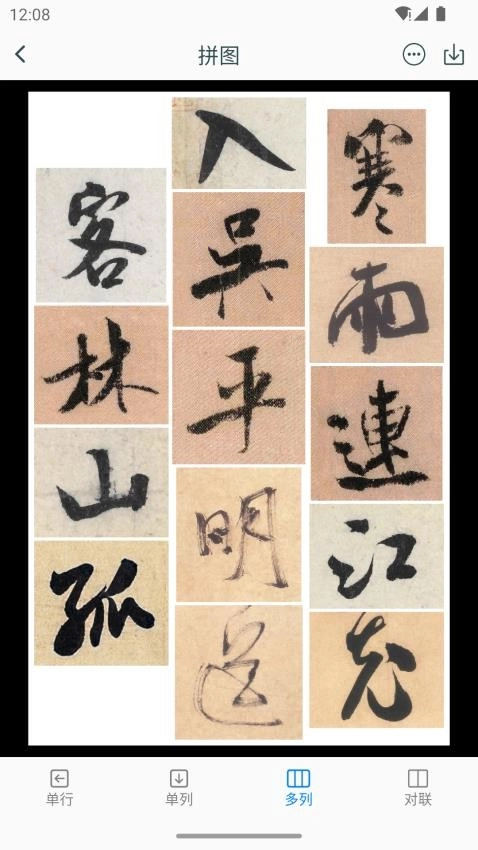 12:08
拼图
寒雨連江夜
入吳平明送
客林山孤
单行
单列
多列
对联